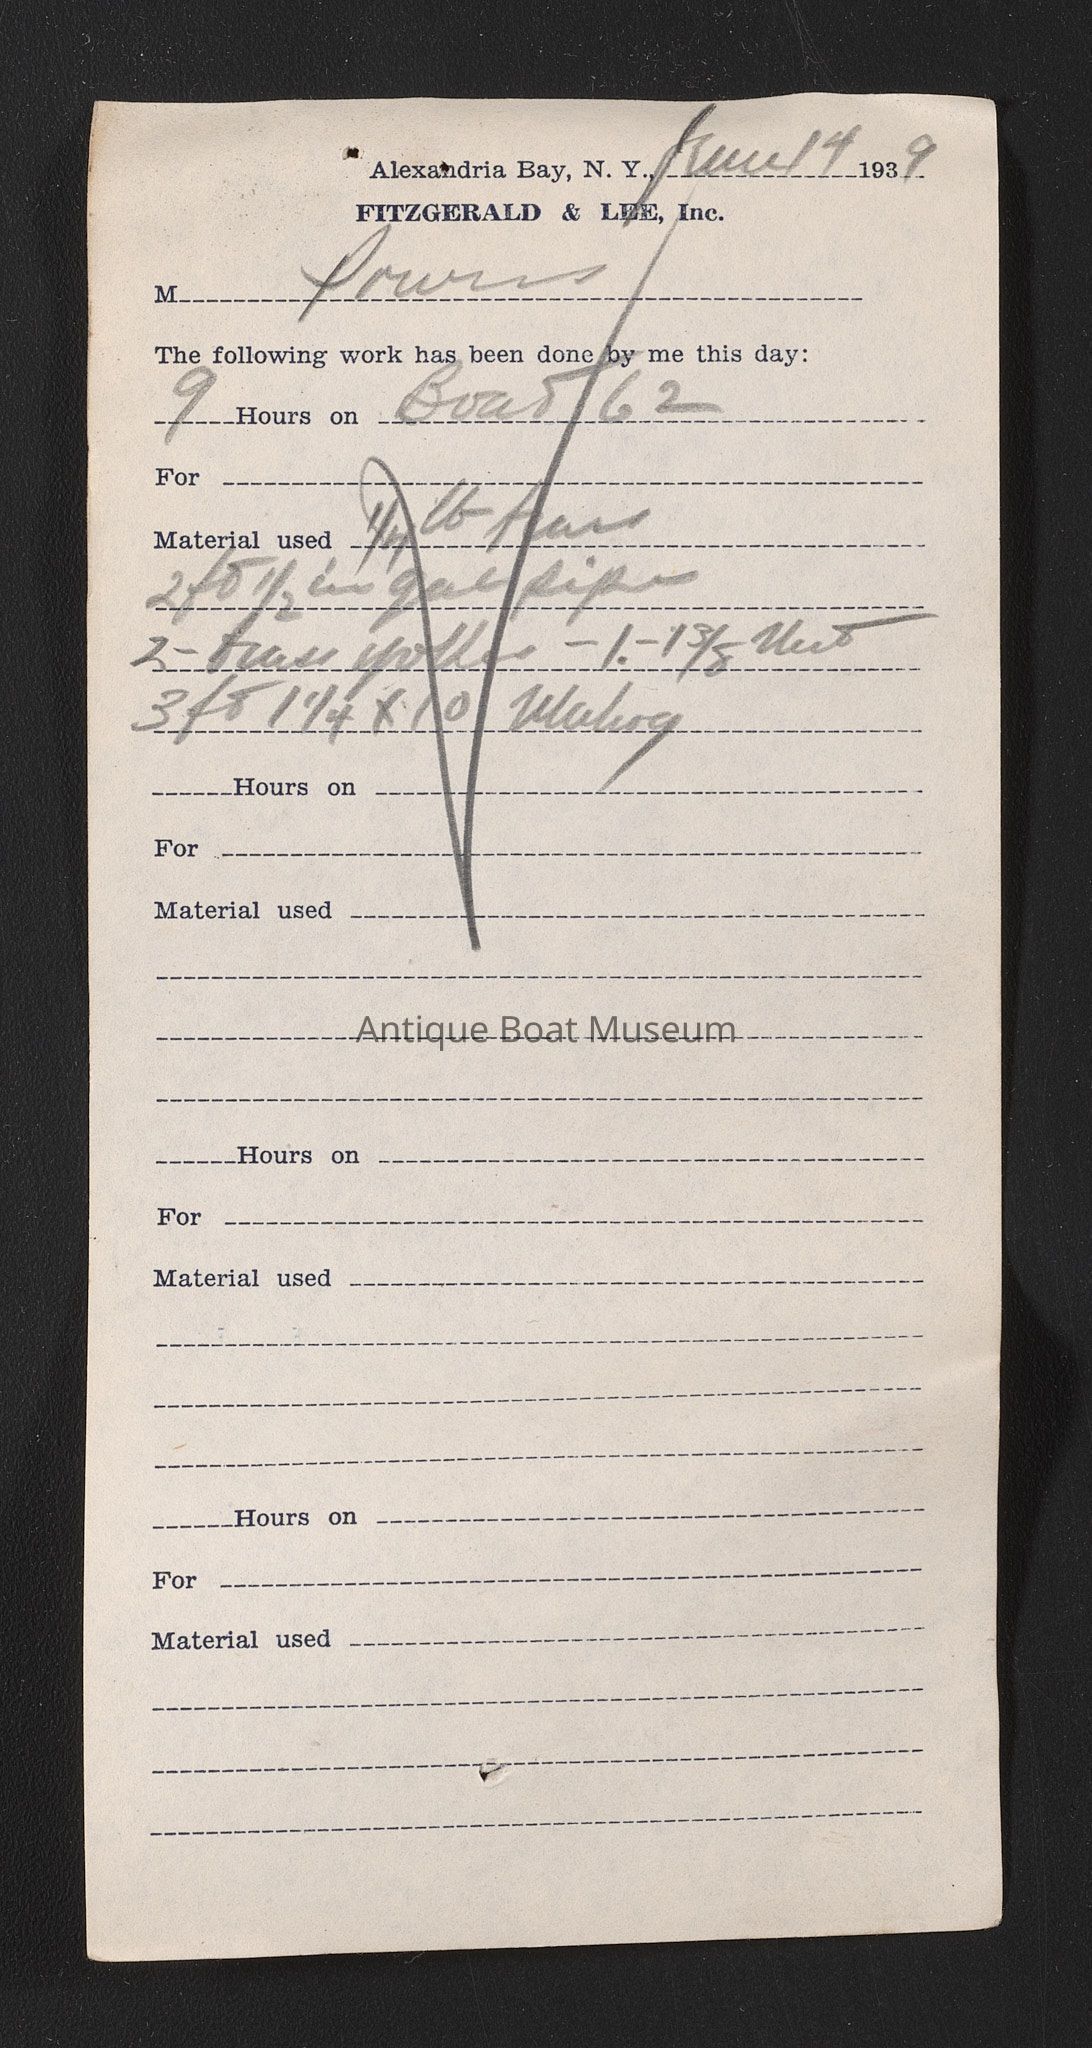 Alexandria Bay, N. Y., June 14 1939
FITZGERALD & LEE, Inc.
M
The following work has been done by me this day:
9 Hours on Boat 62
For
Material used 1/4 lb
2 ft 1/2 in gal pipe
2 - brass - 1. - 1 3/8 Nut
3 ft 1 1/4 x 10 Mahog
Hours on
For
Material used
Antique Boat Museum
Hours on
For
Material used
Hours on
For
Material used